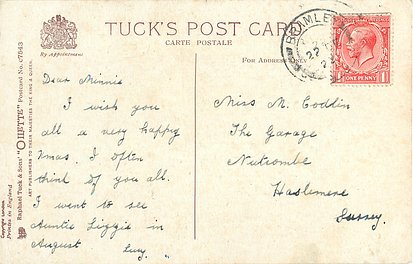 TUCK'S POST CARD
CARTE POSTALE
By Appointment
FOR ADDRESS ONLY
BRAMLEY
22
POSTAGE
ONE PENNY
Dear Minnie
I wish you
all a very happy
Xmas. I often
think of you all.
I went to see
Auntie Lizzie in
August
Lucy.
Miss M. Coddin
The Garage
Nutcombe
Haslemere
Surrey.
Raphael Tuck & Sons' "OILETTE" Postcard No. C7543
ART PUBLISHERS TO THEIR MAJESTIES THE KING & QUEEN.
Copyright London
Printed in England